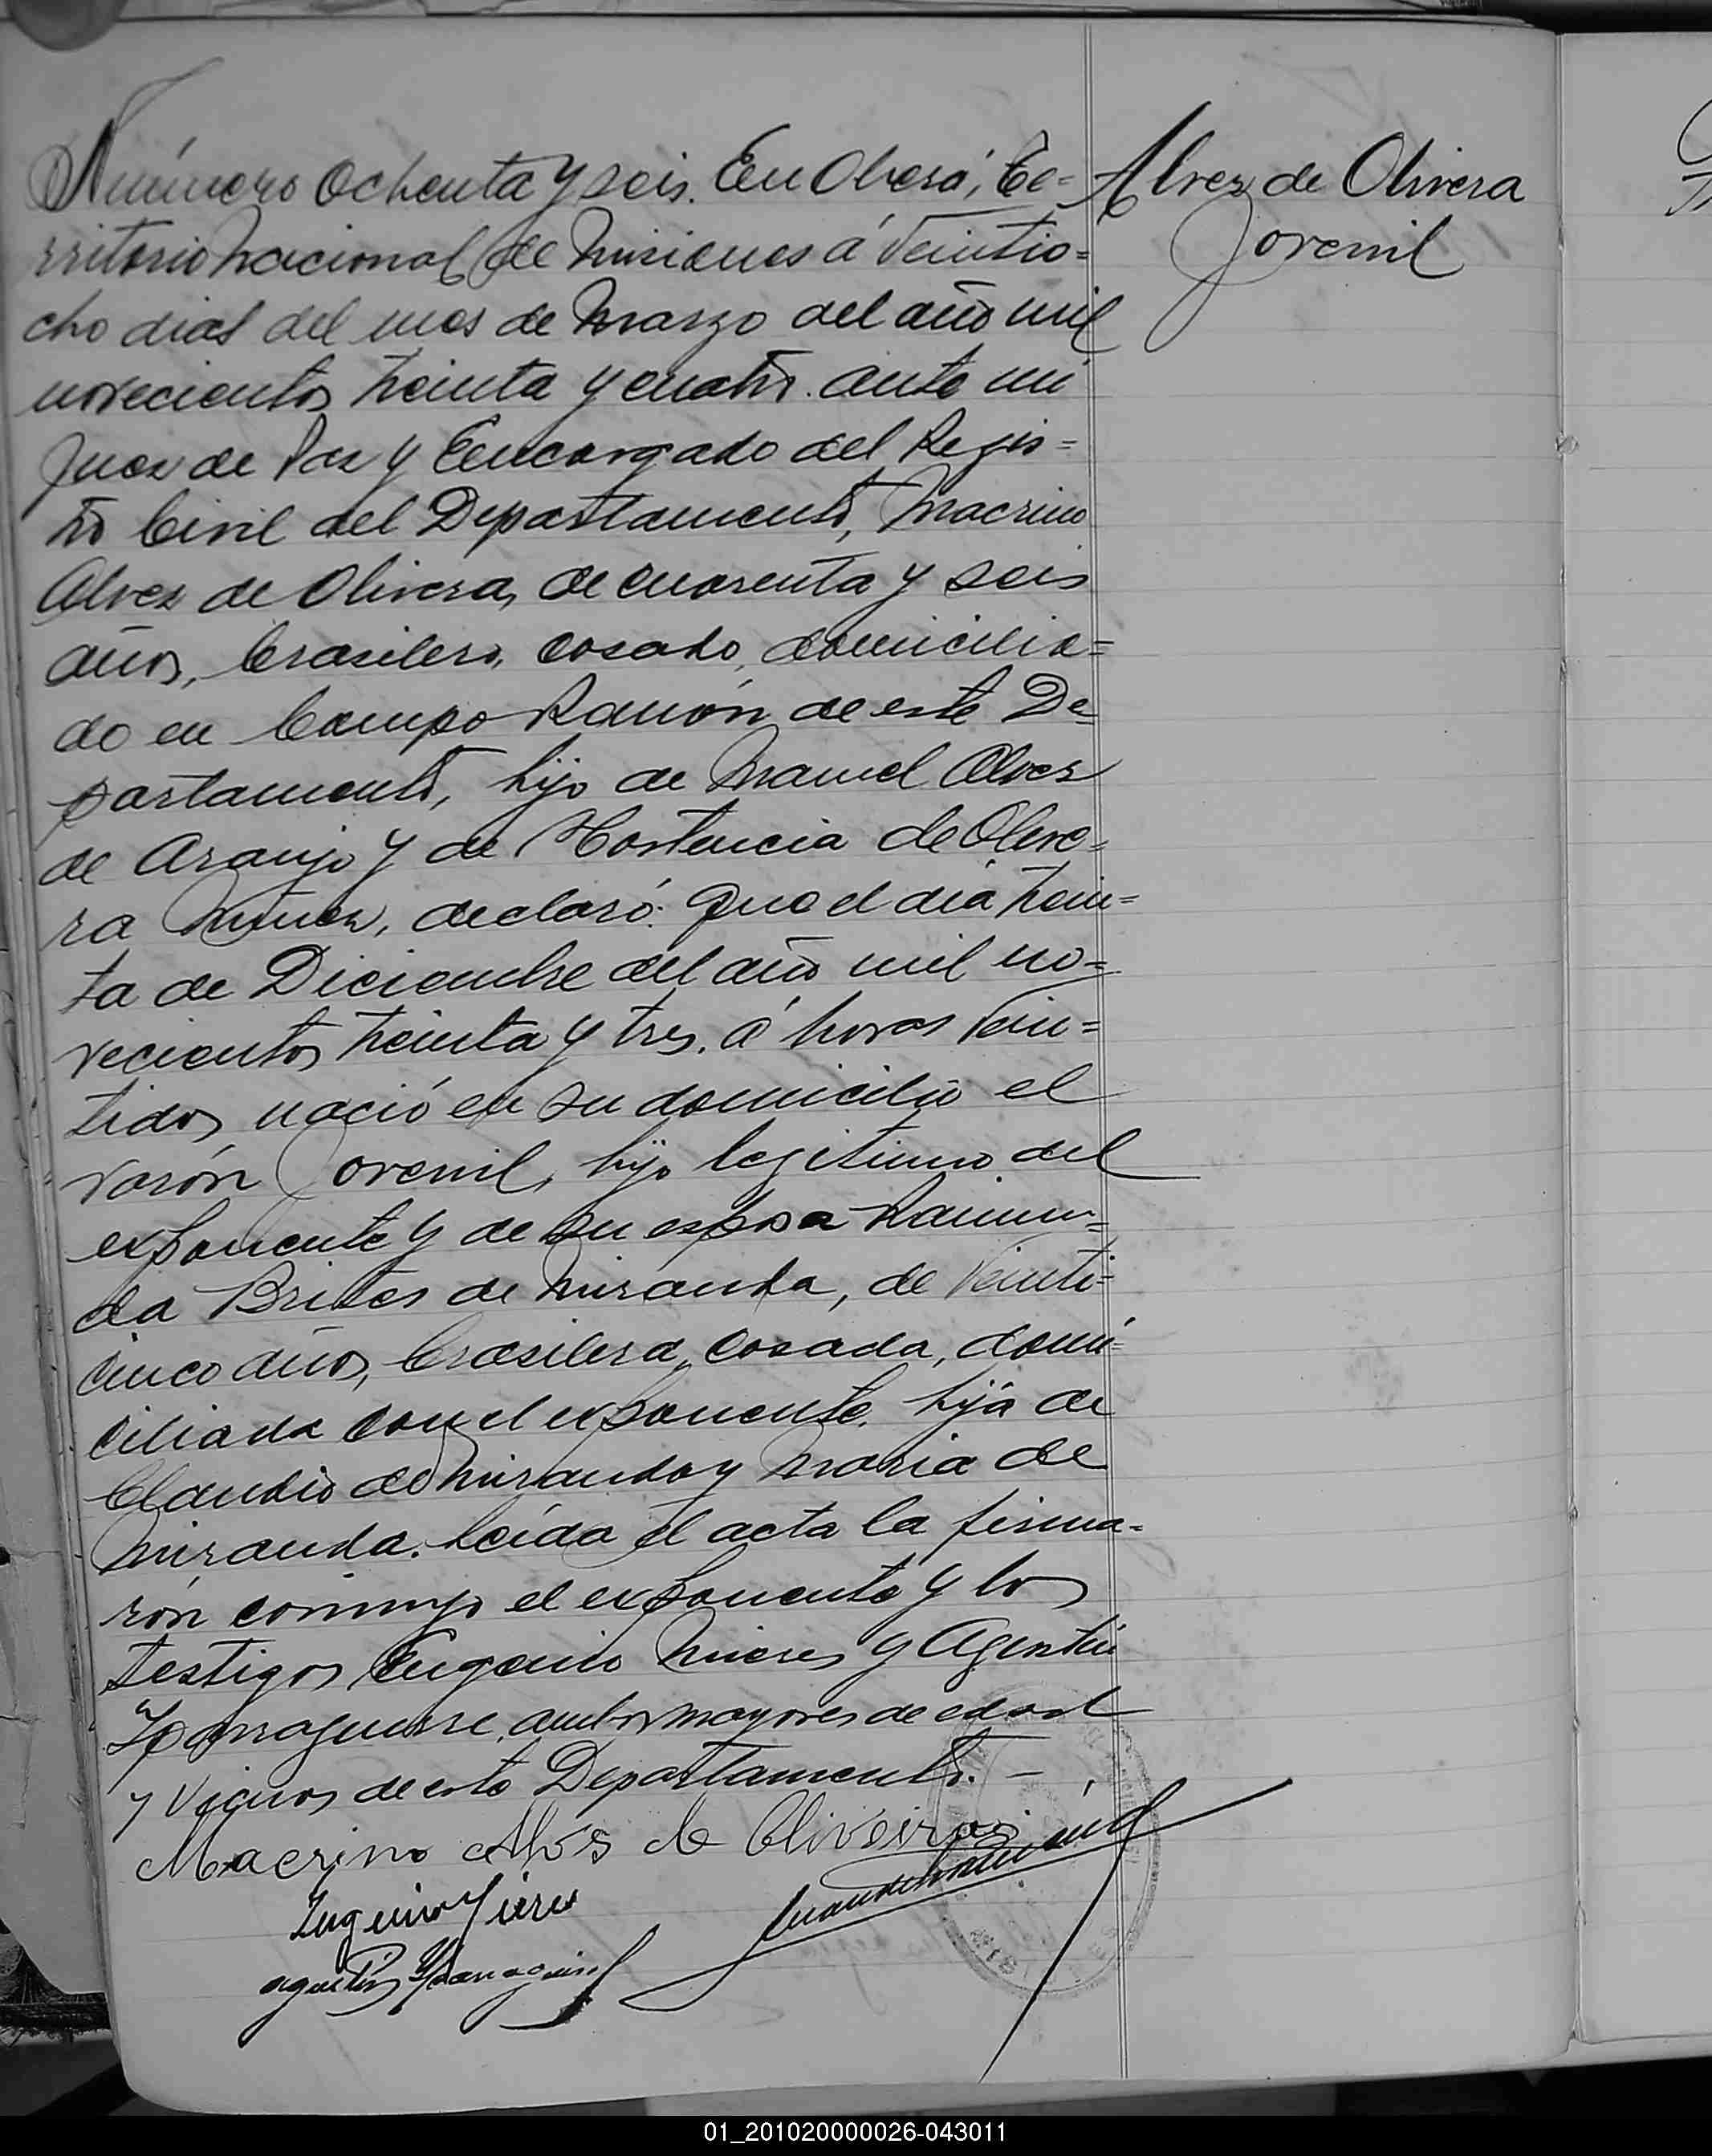 Número Ochenta y seis. En Oberá, Te=
rritorio Nacional de Misiones á Veintio=
cho dias del mes de Marzo del año mil
novecientos treinta y cuatro. ante mi
Juez de Paz y Encargado del Regis=
tro Civil del Departamento, Macrino
Alvez de Olivera, de cuarenta y seis
años, brasilero, casado, domicilia=
do en Campo Ramón, de este De=
partamento, hijo de Manuel Alvez
de Araujo y de Hortencia de Olive=
ra Nunez, declaró: Que el día trein=
ta de Diciembre del año mil no=
vecientos treinta y tres, á horas Vein=
tidos, nació en su domicilio el
varón Jovenil, hijo legitimo del
exponente y de su esposa Raimun=
da Brites de Miranda, de Veinti=
cinco años, brasilera, casada, domi=
ciliada con el exponente, hija de
Claudio de Miranda y Maria de
Miranda. Leída el acta la firma=
rón conmigo el exponente y los
testigos Eugenio Nieres y Agustín
Yparraguirre, ambos mayores de edad
y Vecinos de este Departamento. —
Macrino Alves de Oliveira
Eugenio
Agustin Yparraguirre
Alvez de Olivera
Jovenil
01_201020000026-043011